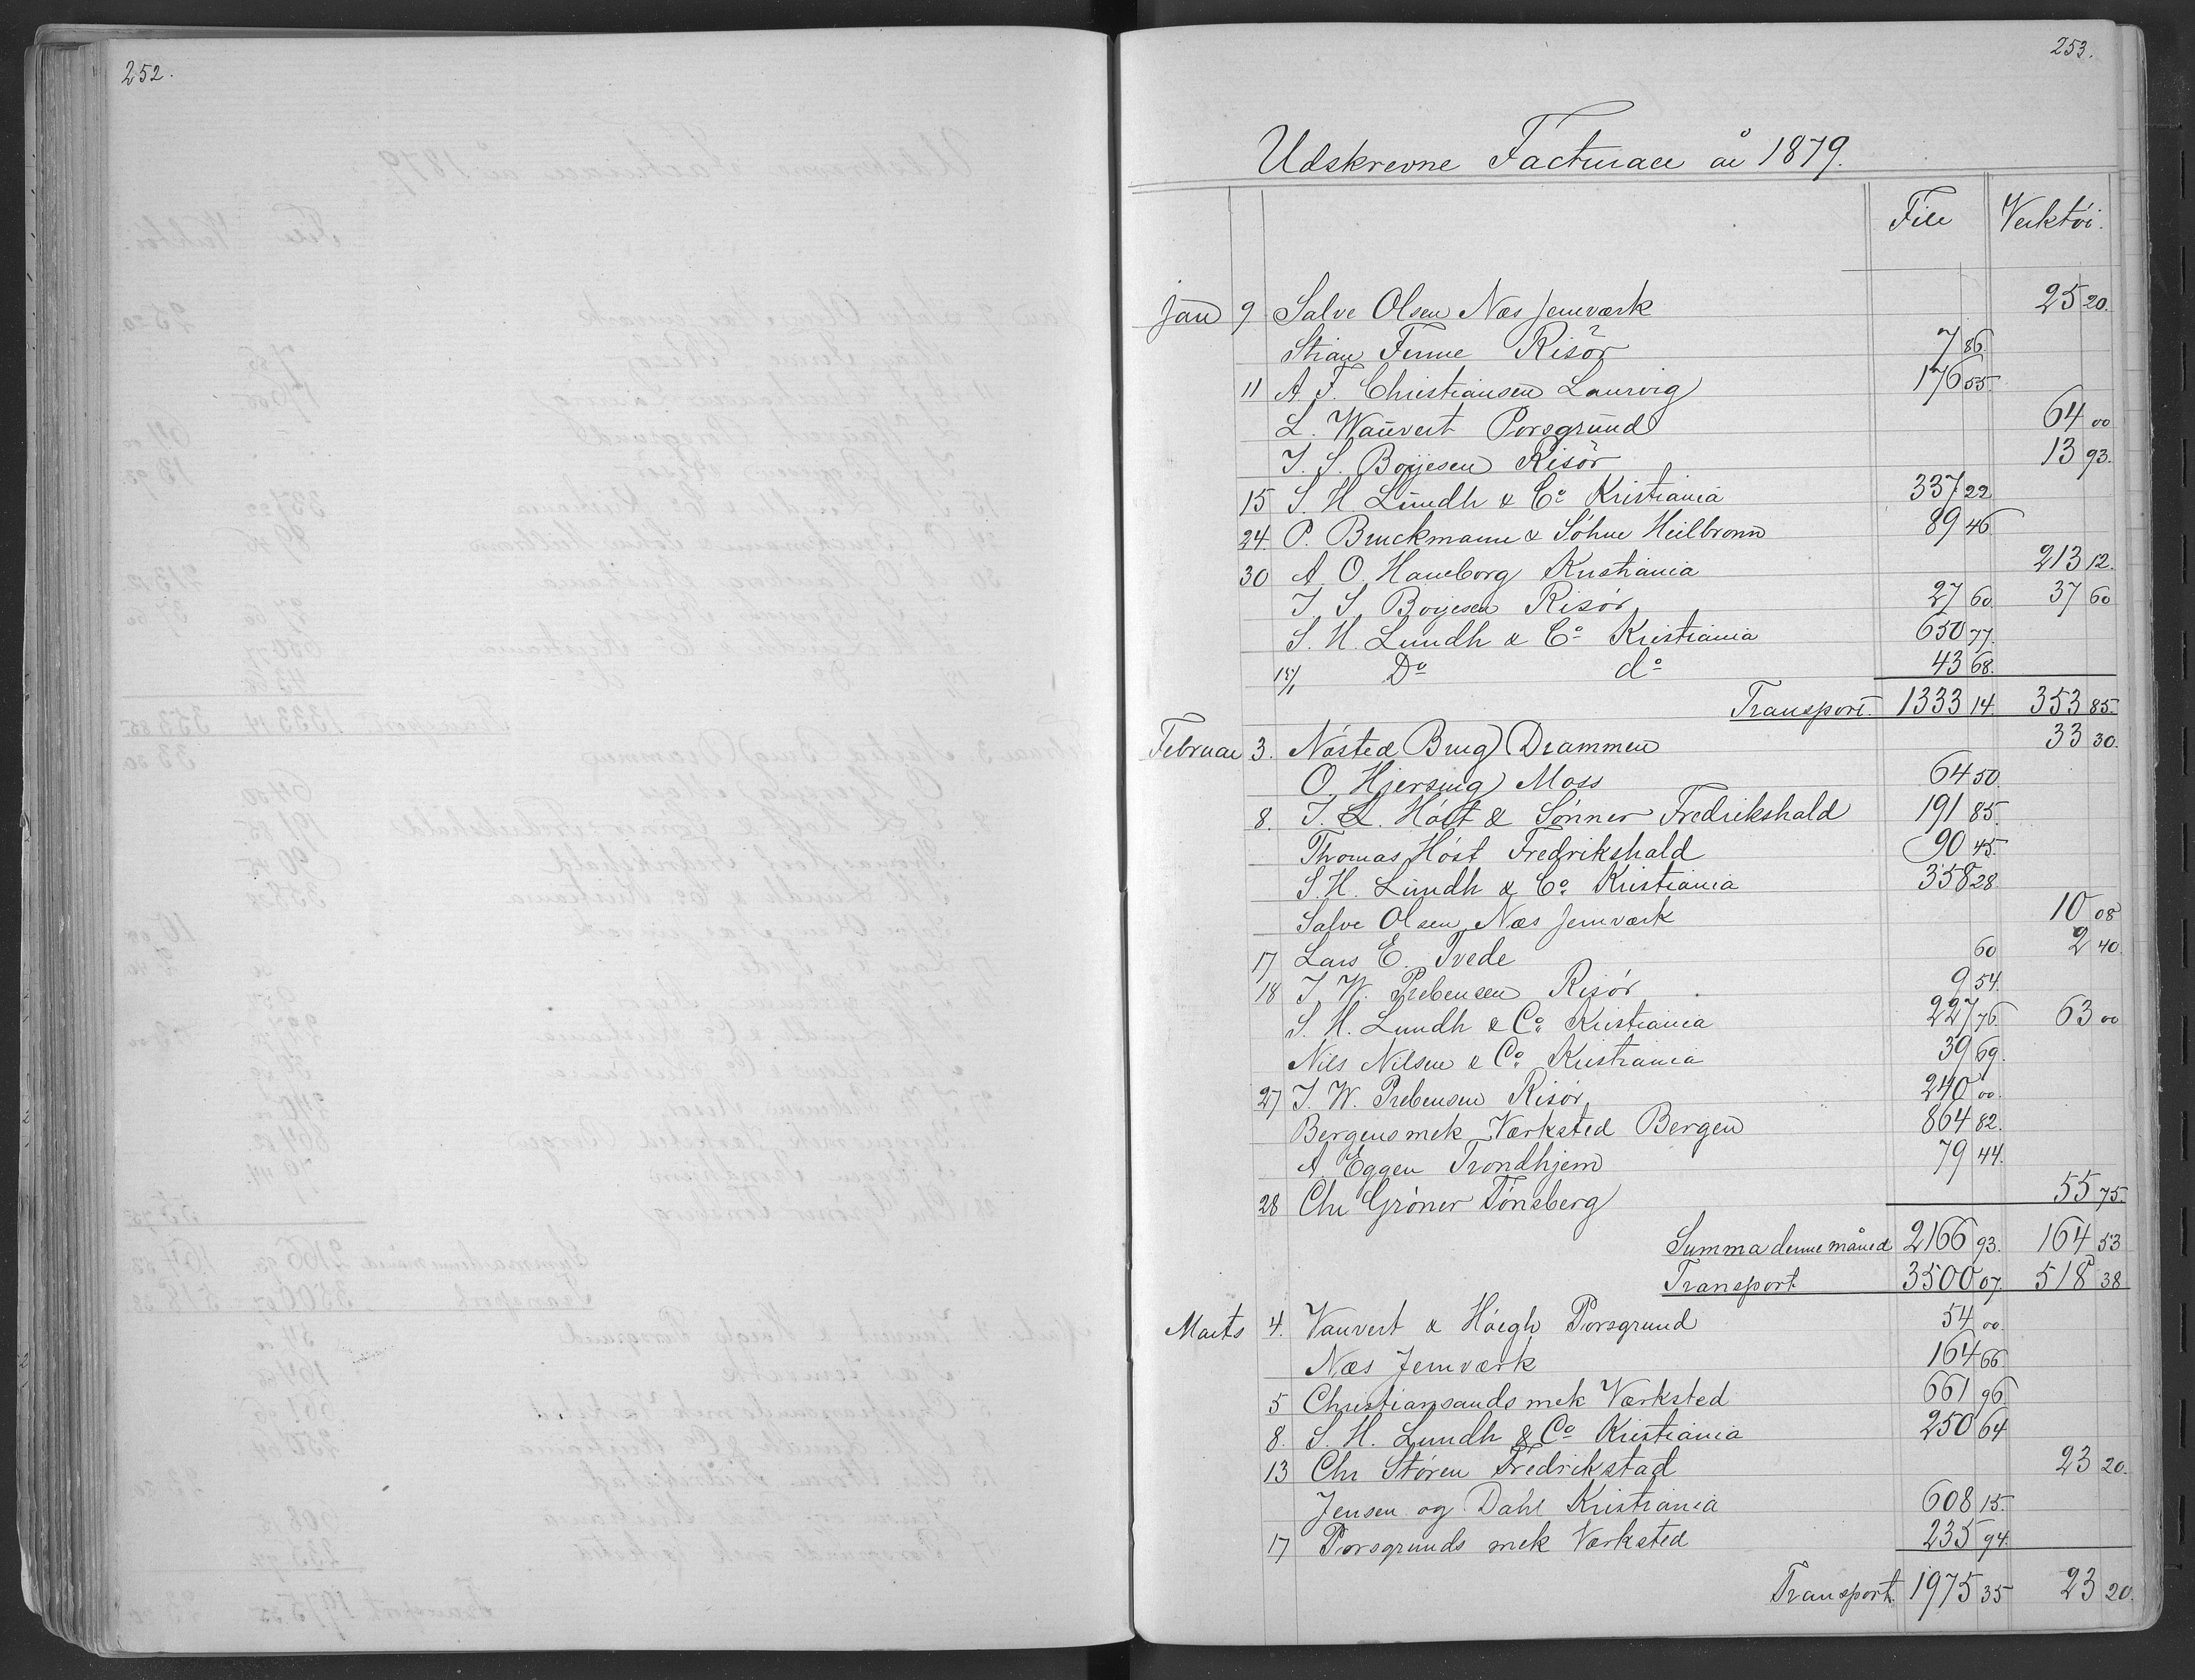 252.
253.
Udskrevne Facturaer år 1879.
File Verktöi.
Jan 9 Salve Olsen Næs Jernværk 25 20.
Stian Finne Risör 7 86.
11 A. F. Christiansen Laurvig 176 55.
L. Wauvert Porsgrund 64 00
J. S. Boyesen Risör 13 93.
15 S. H. Lundh & Co Kristiania 337 22
24. P. Bruckmann & Söhne Heilbronn 89 46.
30 A. O. Haneborg Kristiania 213 12.
J. S. Boyesen Risör 27 60. 37 60
S. H. Lundh & Co Kristiania 650 77.
15/1 Do do 43 68.
Transport. 1333 14. 353 85.
Februar 3. Nösted Brug Drammen 33 30.
O. Hjersing Moss 64 50.
8. J. L. Höst & Sønner Fredrikshald 191 85.
Thomas Höst Fredrikshald 90 45.
S. H. Lundh & Co Kristiania 358 28
Salve Olsen Næs Jernværk 10 08
17 Lars E. Tvede 60 2 40.
18 J. W. Prebensen Risör 9 54.
S. H. Lundh & Co Kristiania 227 76. 63 00
Nils Nilsen & Co Kristiania 39 69.
27 J. W. Prebensen Risör 240 00.
Bergens mek Værksted Bergen 864 82.
A. Eggen Trondhjem 79 44.
28 Chr Gröner Tönsberg 55 75.
Summa denne måned 2166 93. 164 53
Transport 3500 07. 518 38
Marts 4. Vauvert & Höegh Porsgrund 54 00.
Næs Jernværk 164 66.
5 Christiansands mek Værksted 661 96
8. S. H. Lundh & Co Kristiania 250 64
13 Chr Stören Fredrikstad 23 20.
Jensen og Dahl Kristiania 608 15.
17 Porsgrunds mek Værksted 235 94.
Transport. 1975 35 23 20.